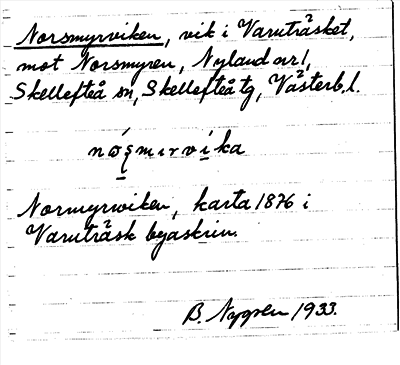 Norsmyrviken, vik i Varuträsket,
mot Norsmyren, Nyland nr 1,
Skellefteå sn, Skellefteå tg, Västerb. l.
Normyrwiken, karta 1876 i
Varuträsk byaskrin.
B. Nygren 1933.